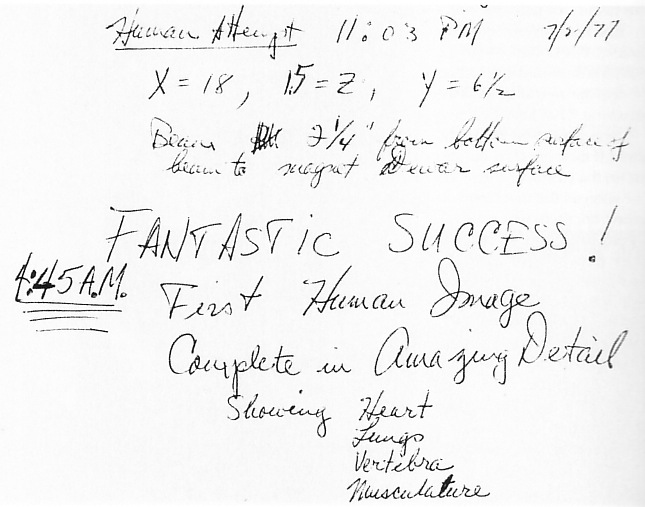 Human Attempt 11:03 PM 7/2/77
X = 18, 15 = Z, Y = 6 1/2
Beam 2 1/4" from bottom surface of
beam to magnet Dewar surface
FANTASTIC SUCCESS!
4:45 A.M. First Human Image
Complete in Amazing Detail
Showing Heart
Lungs
Vertibra
Musculature